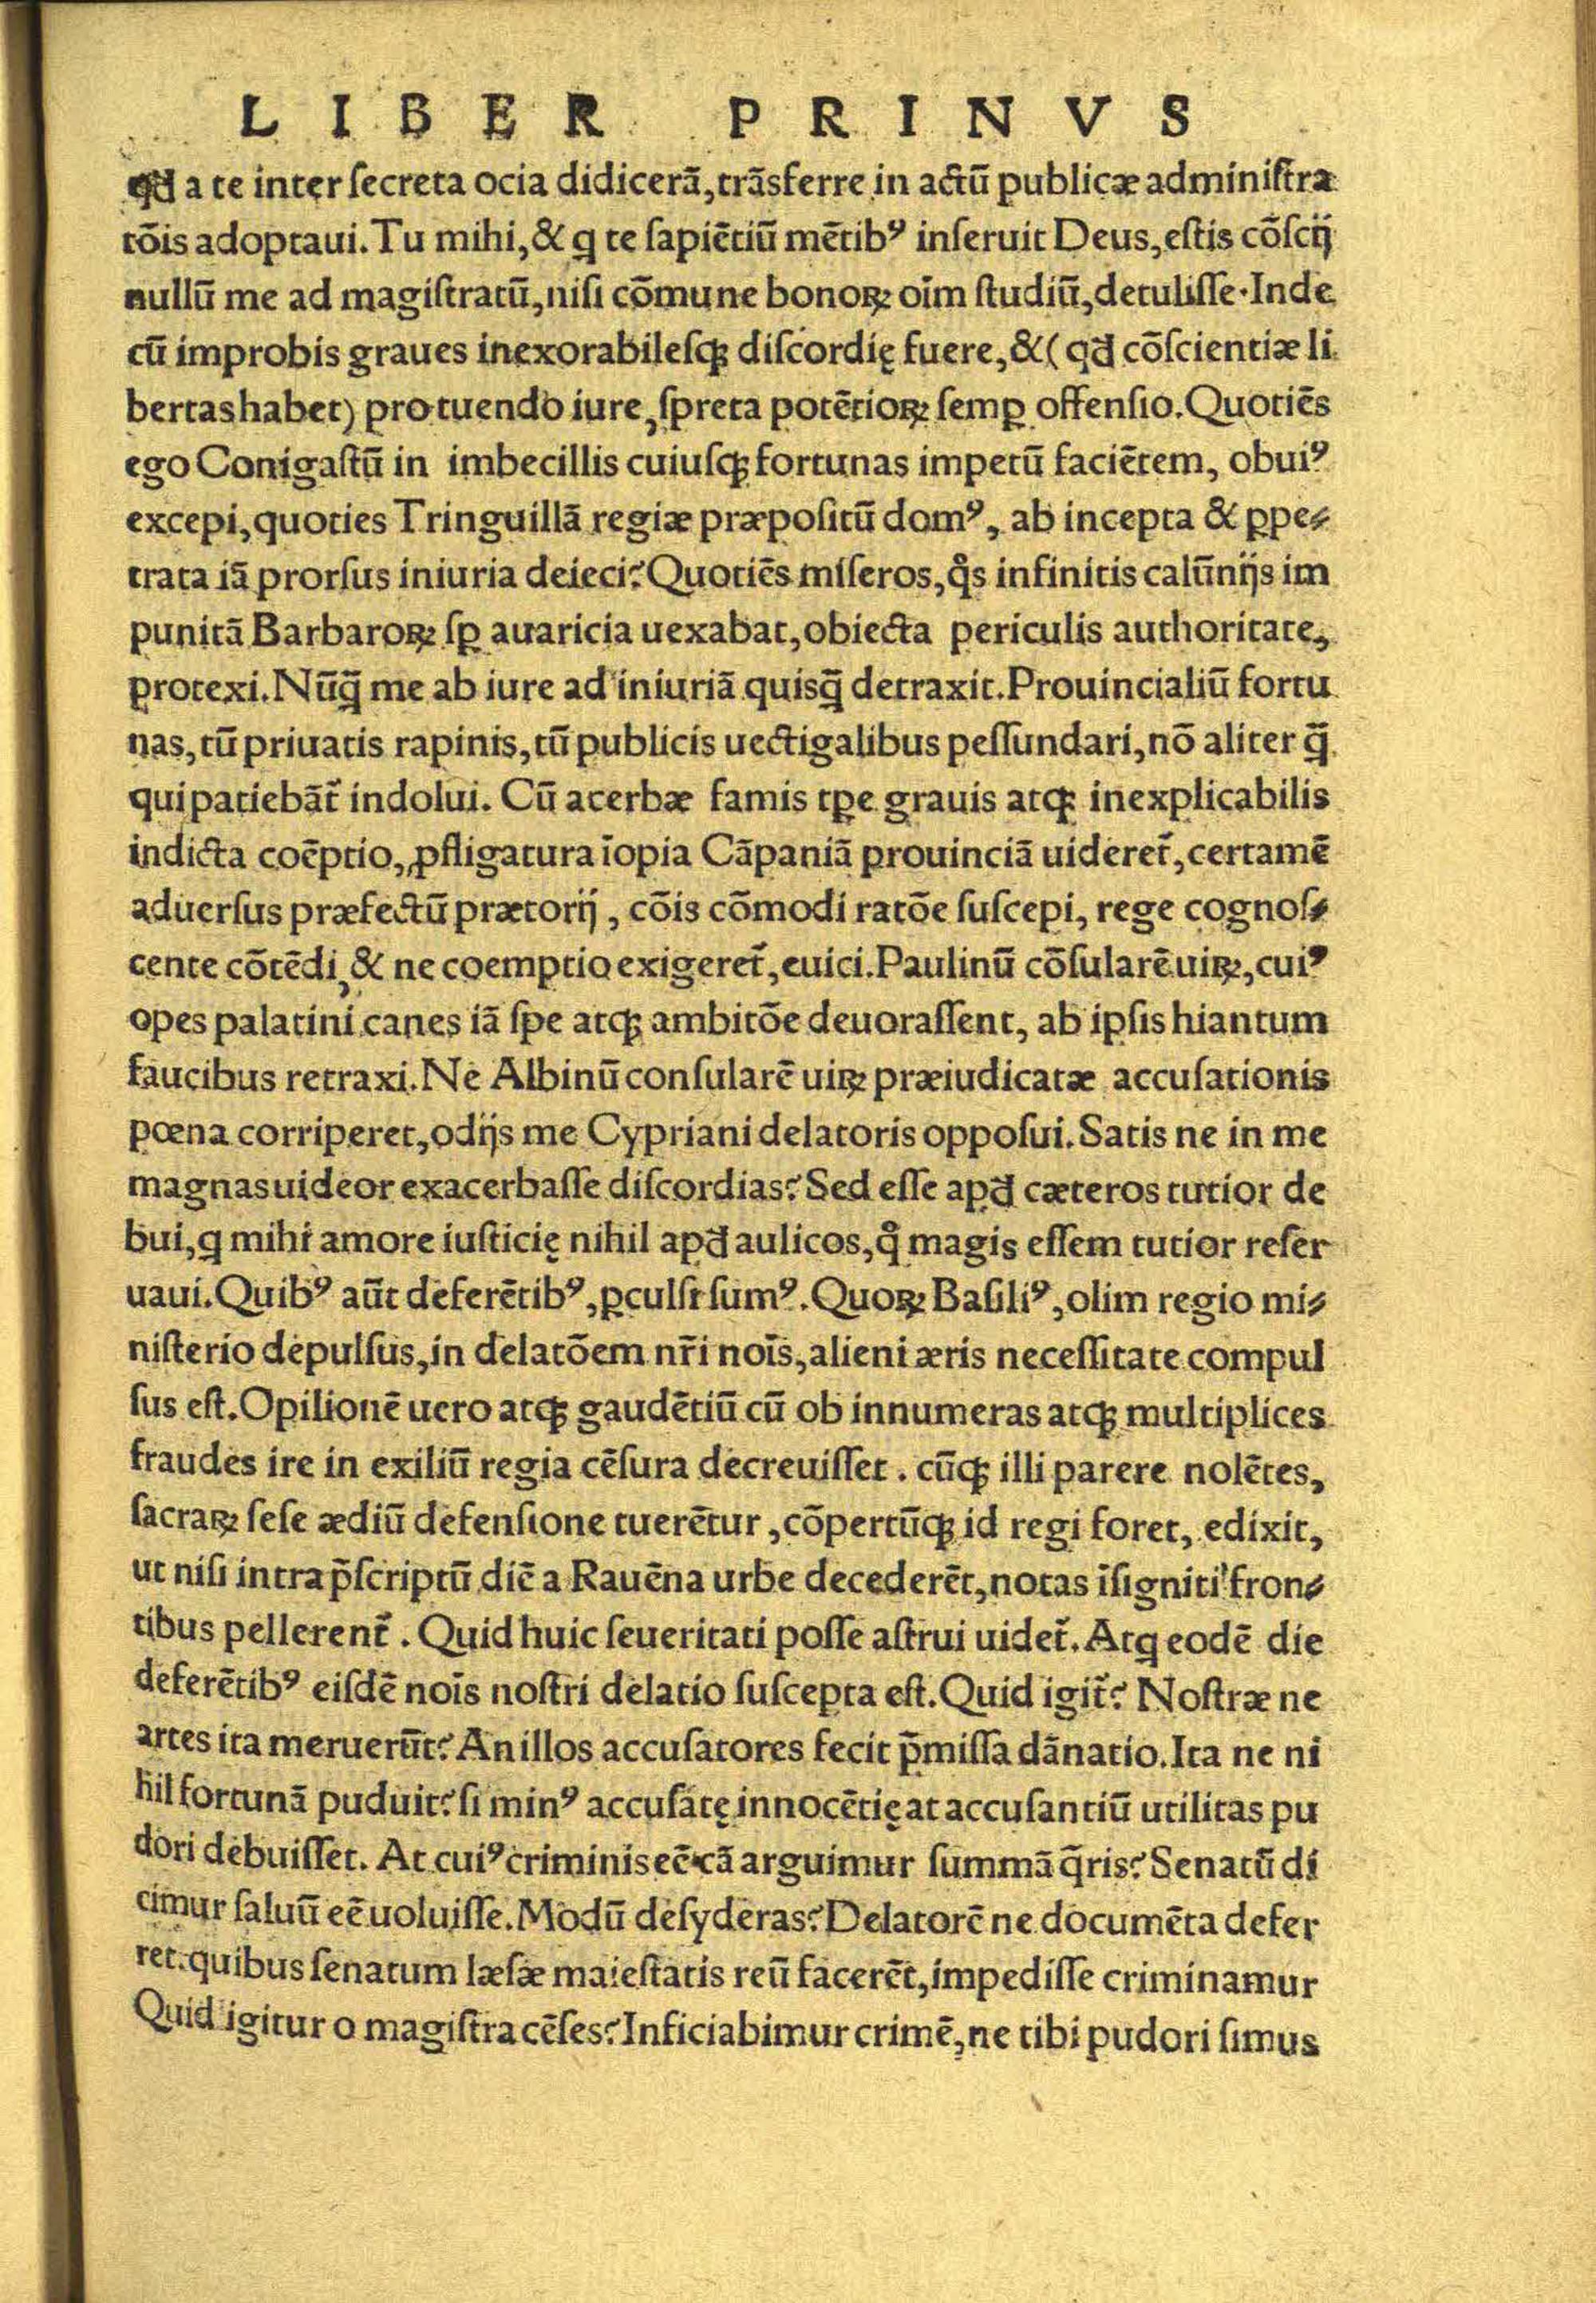 LIBER PRINVS
qđ a te inter ſecreta ocia didicerã, trãsferre in actũ publicæ adminiſtra
tõis adoptaui. Tu mihi, & q te ſapiẽtiũ mẽtibꝰ inſeruit Deus, eſtis cõſcij
nullũ me ad magiſtratũ, niſi cõmune bonoꝝ oĩm ſtudiũ, detuliſſe. Inde
cũ improbis graues inexorabileſqꝫ diſcordię fuere, & (qđ cõſcientiæ li
bertas habet) pro tuendo iure, ſpreta potẽtioꝝ ſemꝑ offenſio. Quotiẽs
ego Conigaſtũ in imbecillis cuiuſqꝫ fortunas impetũ faciẽtem, obuiꝰ
excepi, quoties Tringuillã regiæ præpoſitũ domꝰ, ab incepta & ꝑpe⸗
trata iã prorſus iniuria deieci? Quotiẽs miſeros, qͦs infinitis calũnijs im
punitã Barbaroꝝ ſꝑ auaricia uexabat, obiecta periculis authoritate,
protexi. Nũq̃ me ab iure ad iniuriã quisq̃ detraxit. Prouincialiũ fortu
nas, tũ priuatis rapinis, tũ publicis uectigalibus peſſundari, nõ aliter q̃
qui patiebãt̃ indolui. Cũ acerbæ famis tꝑe grauis atqꝫ inexplicabilis
indicta coẽptio, ꝓfligatura ĩopia Cãpaniã prouinciã uideret̃, certamẽ
aduerſus præfectũ prætorij, cõis cõmodi ratõe ſuſcepi, rege cognoſ⸗
cente cõtẽdi, & ne coemptio exigeret̃, euici. Paulinũ cõſularẽ uiꝝ, cuiꝰ
opes palatini canes iã ſpe atqꝫ ambitõe deuoraſſent, ab ipſis hiantum
faucibus retraxi. Ne Albinũ conſularẽ uiꝝ præiudicatæ accuſationis
pœna corriperet, odijs me Cypriani delatoris oppoſui. Satis ne in me
magnas uideor exacerbaſſe diſcordias? Sed eſſe apđ cæteros tutior de
bui, q mihi amore iuſticię nihil apđ aulicos, qͦ magis eſſem tutior reſer
uaui. Quibꝰ aũt deferẽtibꝰ, ꝑculſi ſumꝰ. Quoꝝ Baſiliꝰ, olim regio mi⸗
niſterio depulſus, in delatõem nr̃i noĩs, alieni æris neceſſitate compul
ſus eſt. Opilionẽ uero atqꝫ gaudẽtiũ cũ ob innumeras atqꝫ multiplices
fraudes ire in exiliũ regia cẽſura decreuiſſet. cũqꝫ illi parere nolẽtes,
ſacraꝝ ſeſe ædiũ defenſione tuerẽtur, cõpertũqꝫ id regi foret, edixit,
ut niſi intra p̃ſcriptũ diẽ a Rauẽna urbe decederẽt, notas ĩſigniti fron⸗
tibus pellerent̃. Quid huic ſeueritati poſſe aſtrui uidet̃. Atq eodẽ die
deferẽtibꝰ eiſdẽ noĩs noſtri delatio ſuſcepta eſt. Quid igit̃? Noſtræ ne
artes ita meruerũt? An illos accuſatores fecit p̃miſſa dãnatio. Ita ne ni
hil fortunã puduit? ſi minꝰ accuſatę innocẽtię at accuſantiũ utilitas pu
dori debuiſſet. At cuiꝰ criminis eẽ cã arguimur ſummã q̃ris? Senatũ di
cimur ſaluũ eẽ uoluiſſe. Modũ deſyderas? Delatorẽ ne documẽta defer
ret. quibus ſenatum læſæ maieſtatis reũ facerẽt, impediſſe criminamur
Quid igitur o magiſtra cẽſes? Inficiabimur crimẽ, ne tibi pudori ſimus